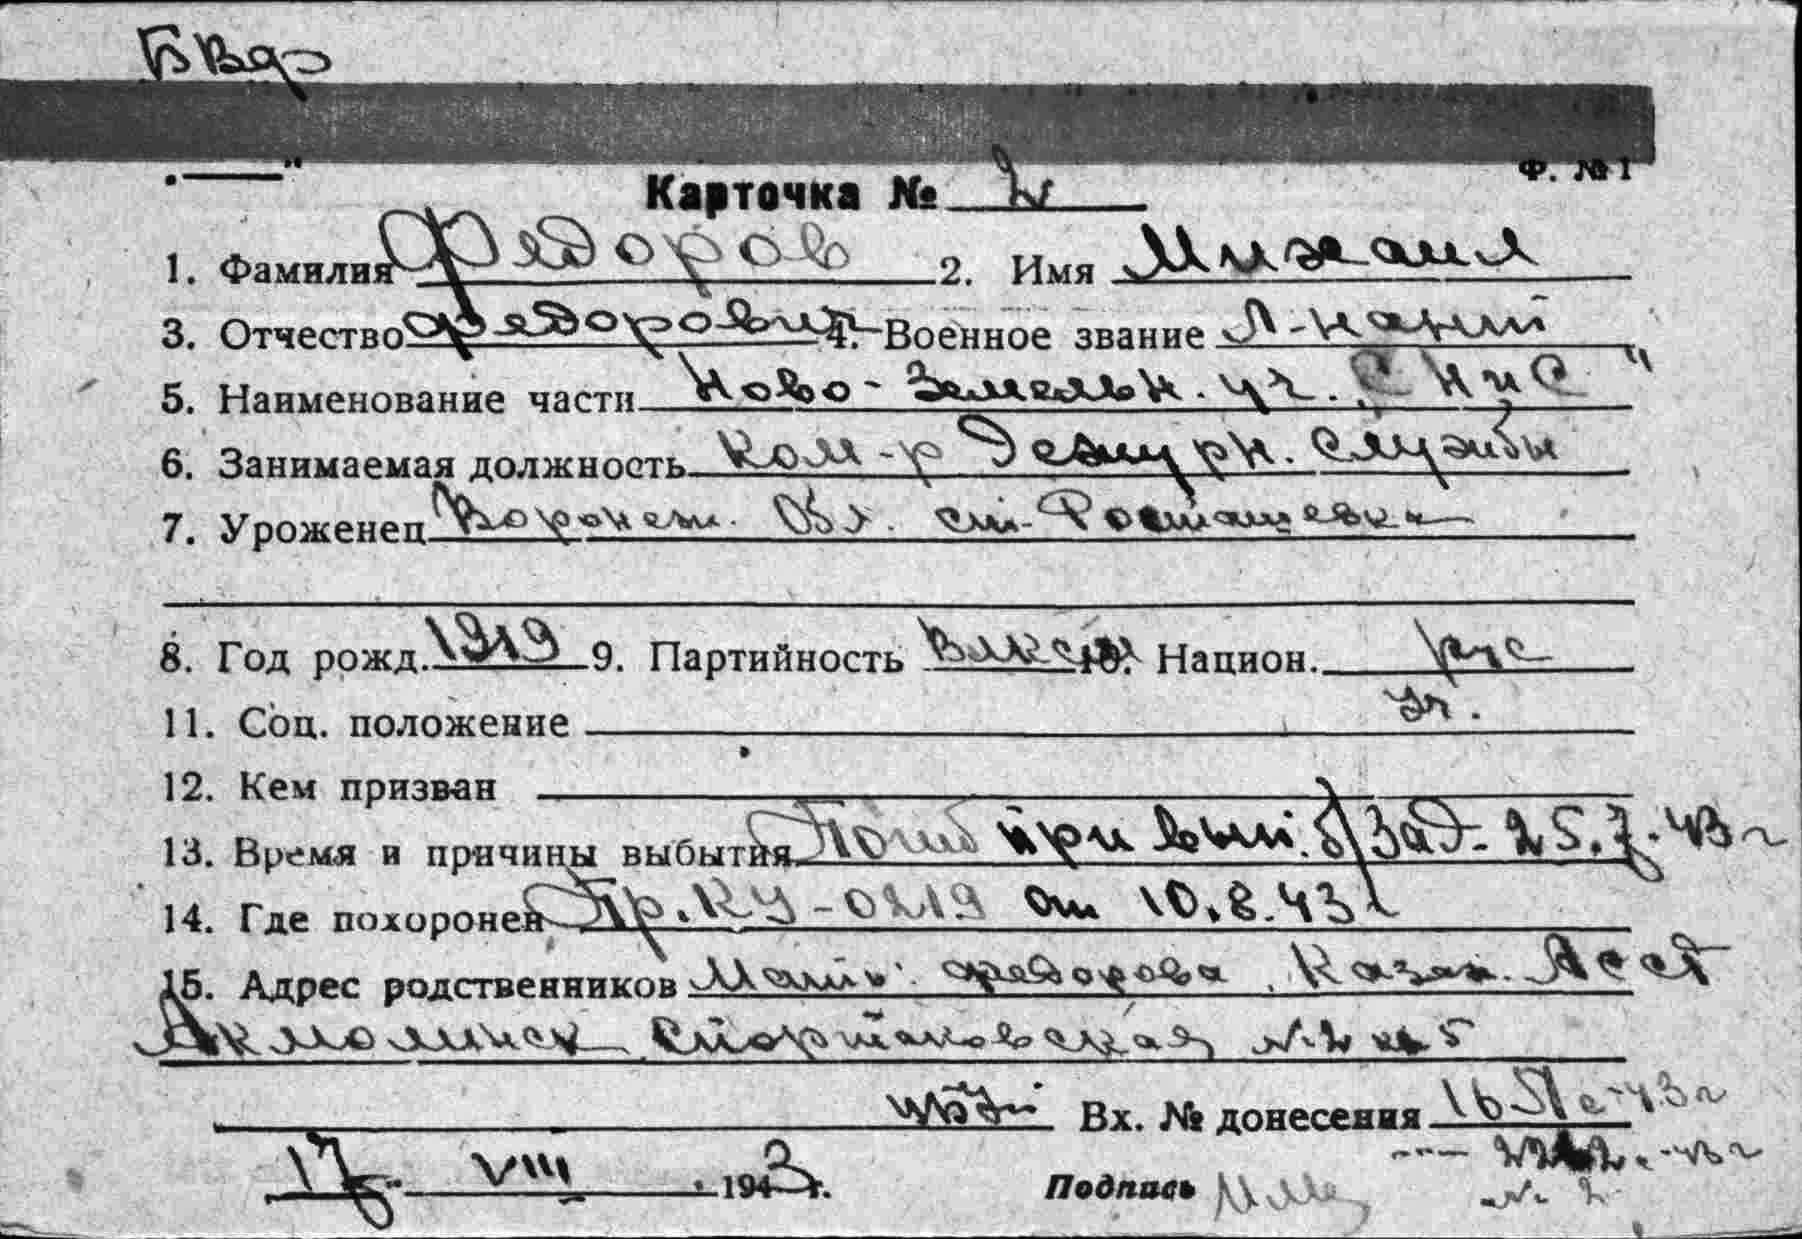 БВФ
Ф. № 1
Карточка № 2
1. Фамилия Федоров 2. Имя Михаил
3. Отчество Федорович 4. Военное звание Л-нант
5. Наименование части Ново-Земельн. уч. „СНиС"
6. Занимаемая должность Ком-р Дежурн. Службы
7. Уроженец Воронеж. Обл. ст. Росташевка
8. Год рожд. 1919 9. Партийность ВЛКСМ 10. Национ. рус
11. Соц. положение уч.
12. Кем призван
13. Время и причины выбытия Погиб при вып. б/зад. 25.7.43 г
14. Где похоронен Пр. КУ-0219 от 10.8.43 г
15. Адрес родственников Мать: Федорова, Казах. АССР
Акмолинск Спортаковская № 2 кв 5
Вх. № донесения 1651с-43 г
43 г
17 VIII 1943 г. Подпись
№ 2